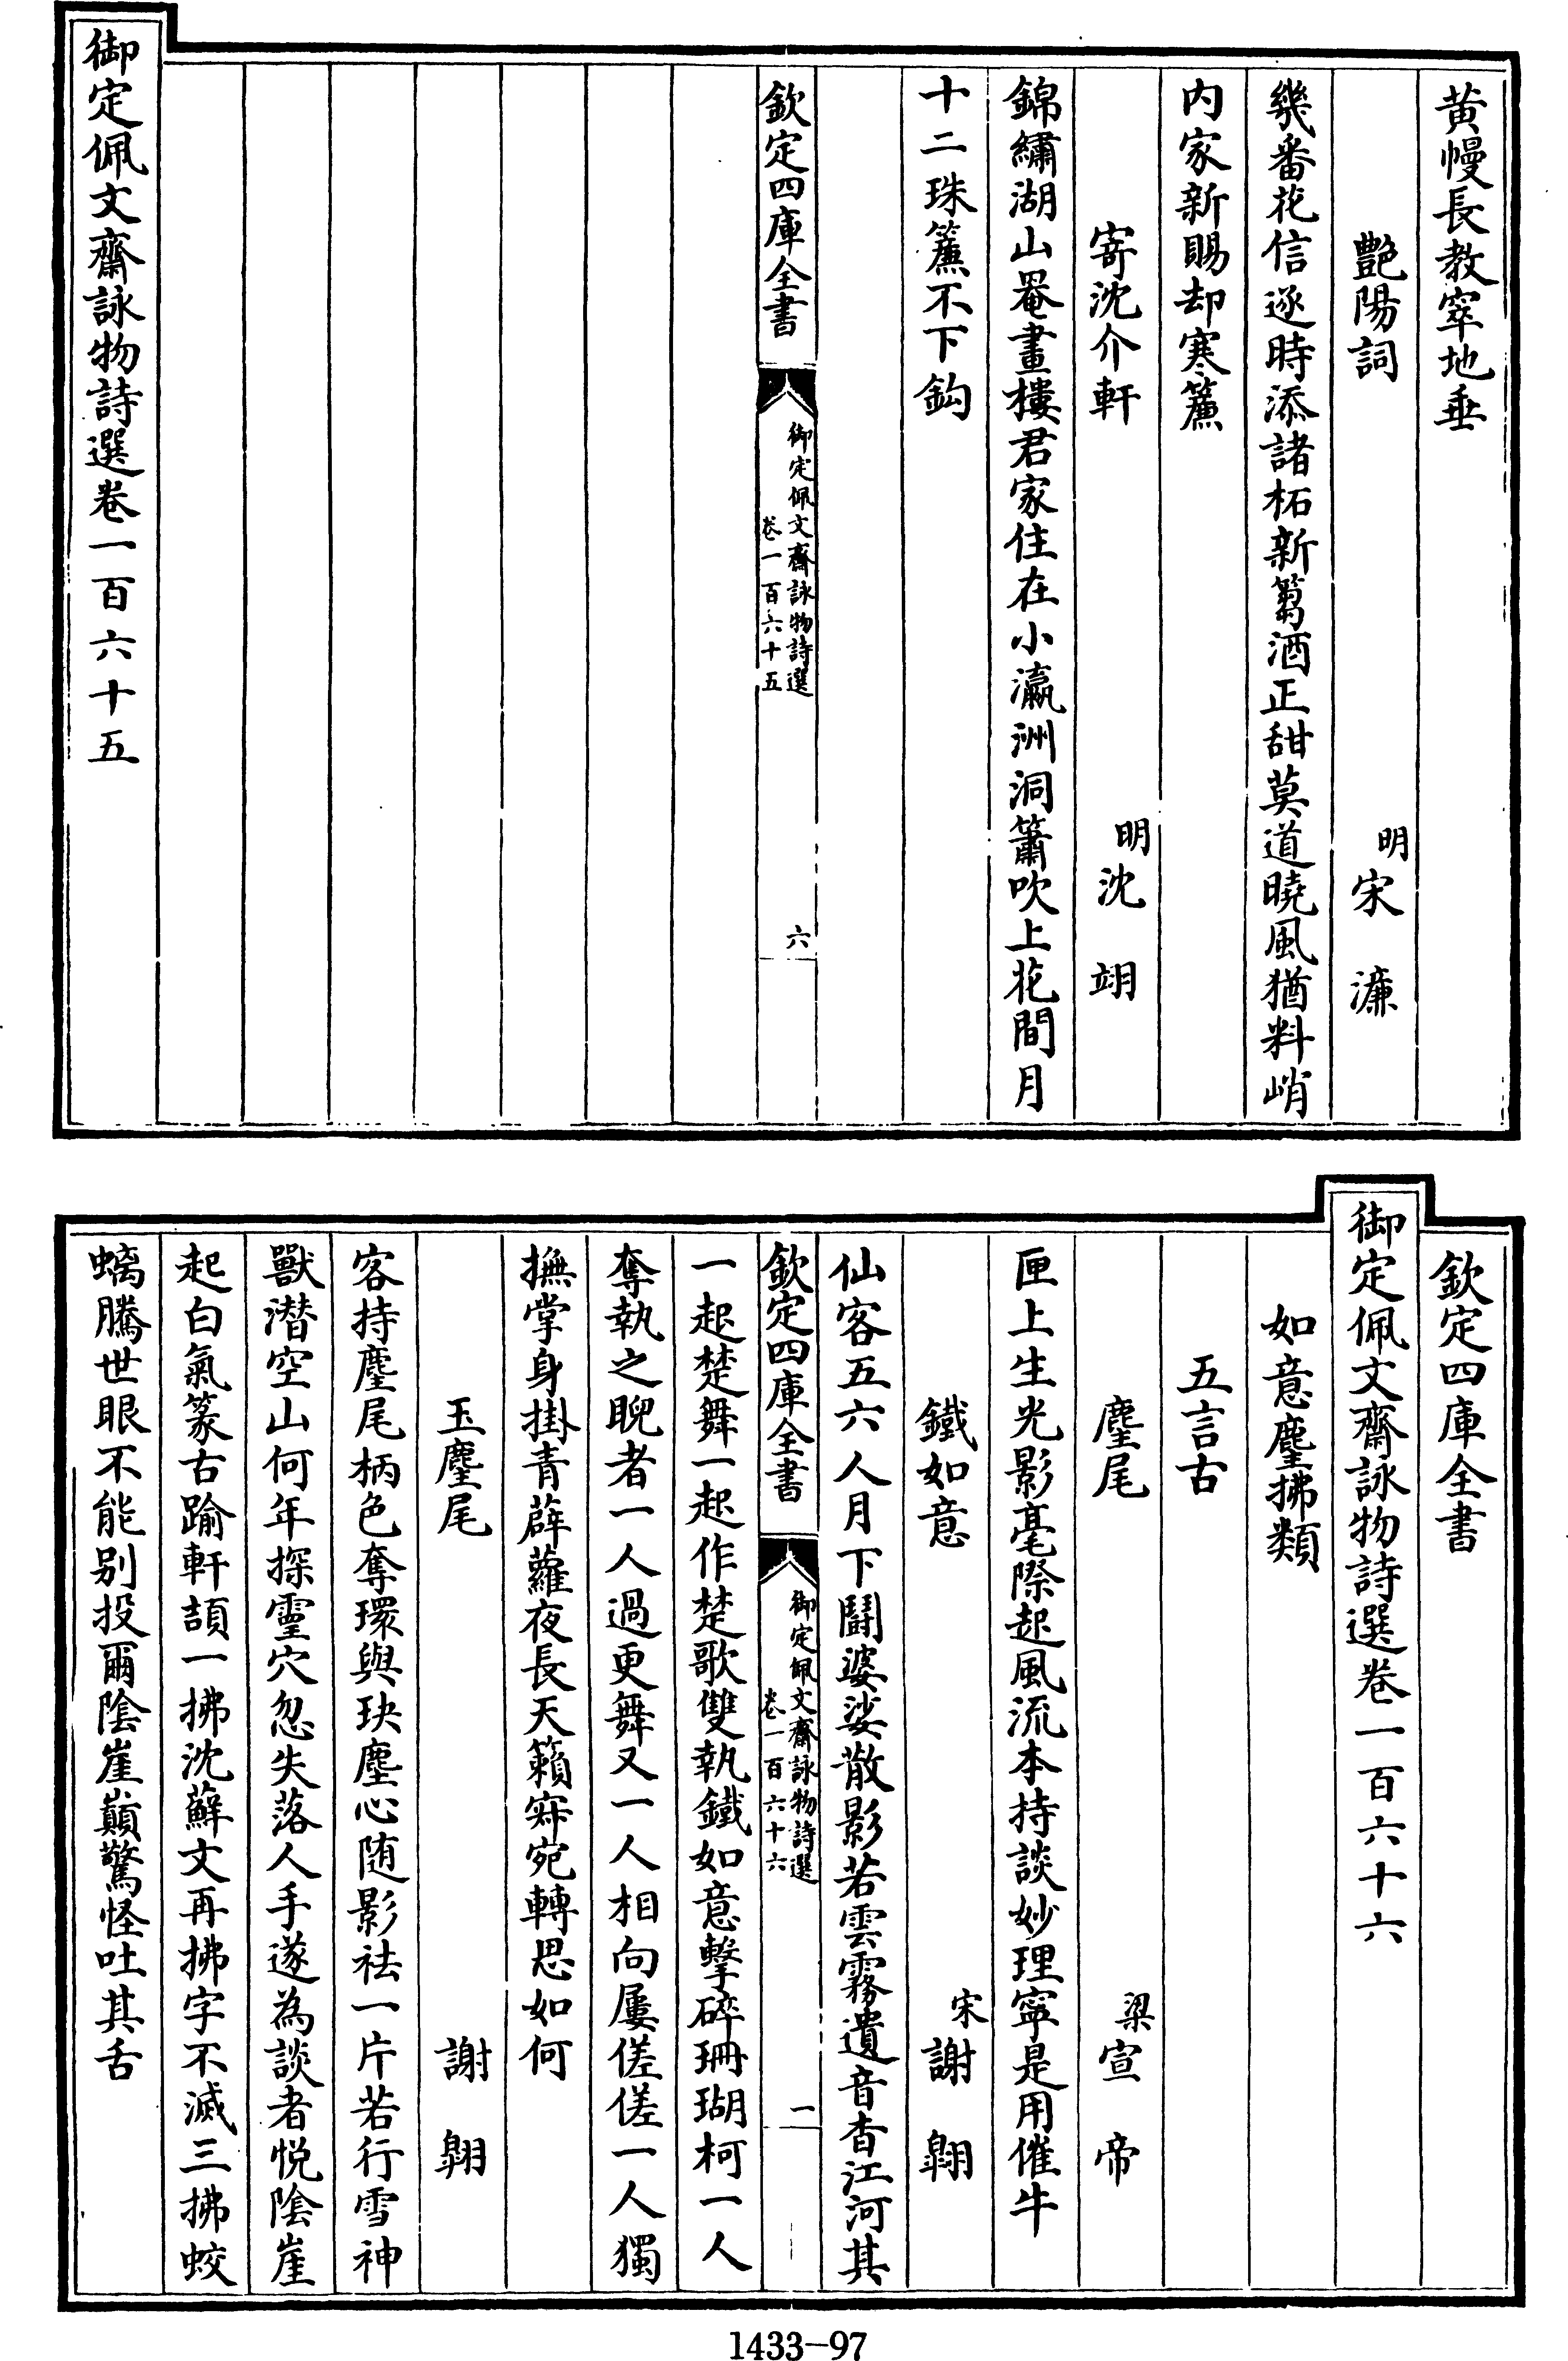 黄幔長教窣地垂
艶陽詞　明宋濂
幾番花信逐時添諸柘新篘酒正甜莫道曉風猶料峭
内家新賜却寒簾
寄沈介軒　明沈翊
錦繡湖山罨畫樓君家住在小瀛洲洞簫吹上花間月
十二珠簾不下鈎
欽定四庫全書
御定佩文齋詠物詩選
卷一百六十五
六
御定佩文齋詠物詩選卷一百六十五
欽定四庫全書
御定佩文齋詠物詩選卷一百六十六
如意麈拂類
五言古
麈尾　梁宣帝
匣上生光影毫際起風流本持談妙理寧是用催牛
鐵如意　宋謝翱
仙客五六人月下鬭婆娑散影若雲霧遺音杳江河其
欽定四庫全書
御定佩文齋詠物詩選
卷一百六十六
一
一起楚舞一起作楚歌雙執鐵如意擊碎珊瑚柯一人
奪執之睨者一人過更舞又一人相向屢傞傞一人獨
撫掌身掛青薜蘿夜長天籟寂宛轉思如何
玉麈尾　謝翱
客持麈尾柄色奪環與玦塵心随影袪一片若行雪神
獸潜空山何年探靈穴忽失落人手遂為談者悦陰崖
起白氣篆古踰軒頡一拂沈蘚文再拂字不滅三拂蛟
螭騰世眼不能别投爾陰崖巔驚怪吐其舌
1433-97